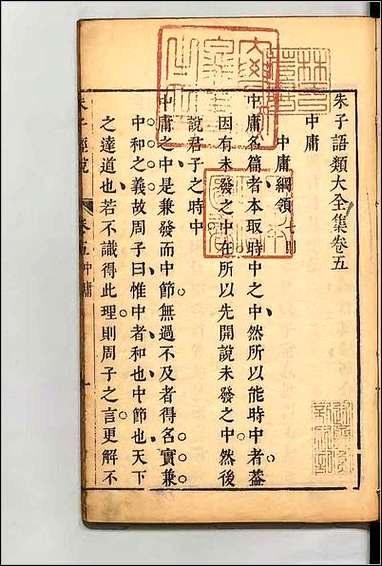 朱子語類大全集卷五
中庸
中庸綱領
中庸名篇者本取時中之中然所以能時中者蓋
因有未發之中在所以先開說未發之中然後
說君子之時中
中庸之中是兼發而中節無過不及者得名實兼
中和之義故周子曰惟中者和也中節也天下
之達道也若不識得此理則周子之言更解不
中庸